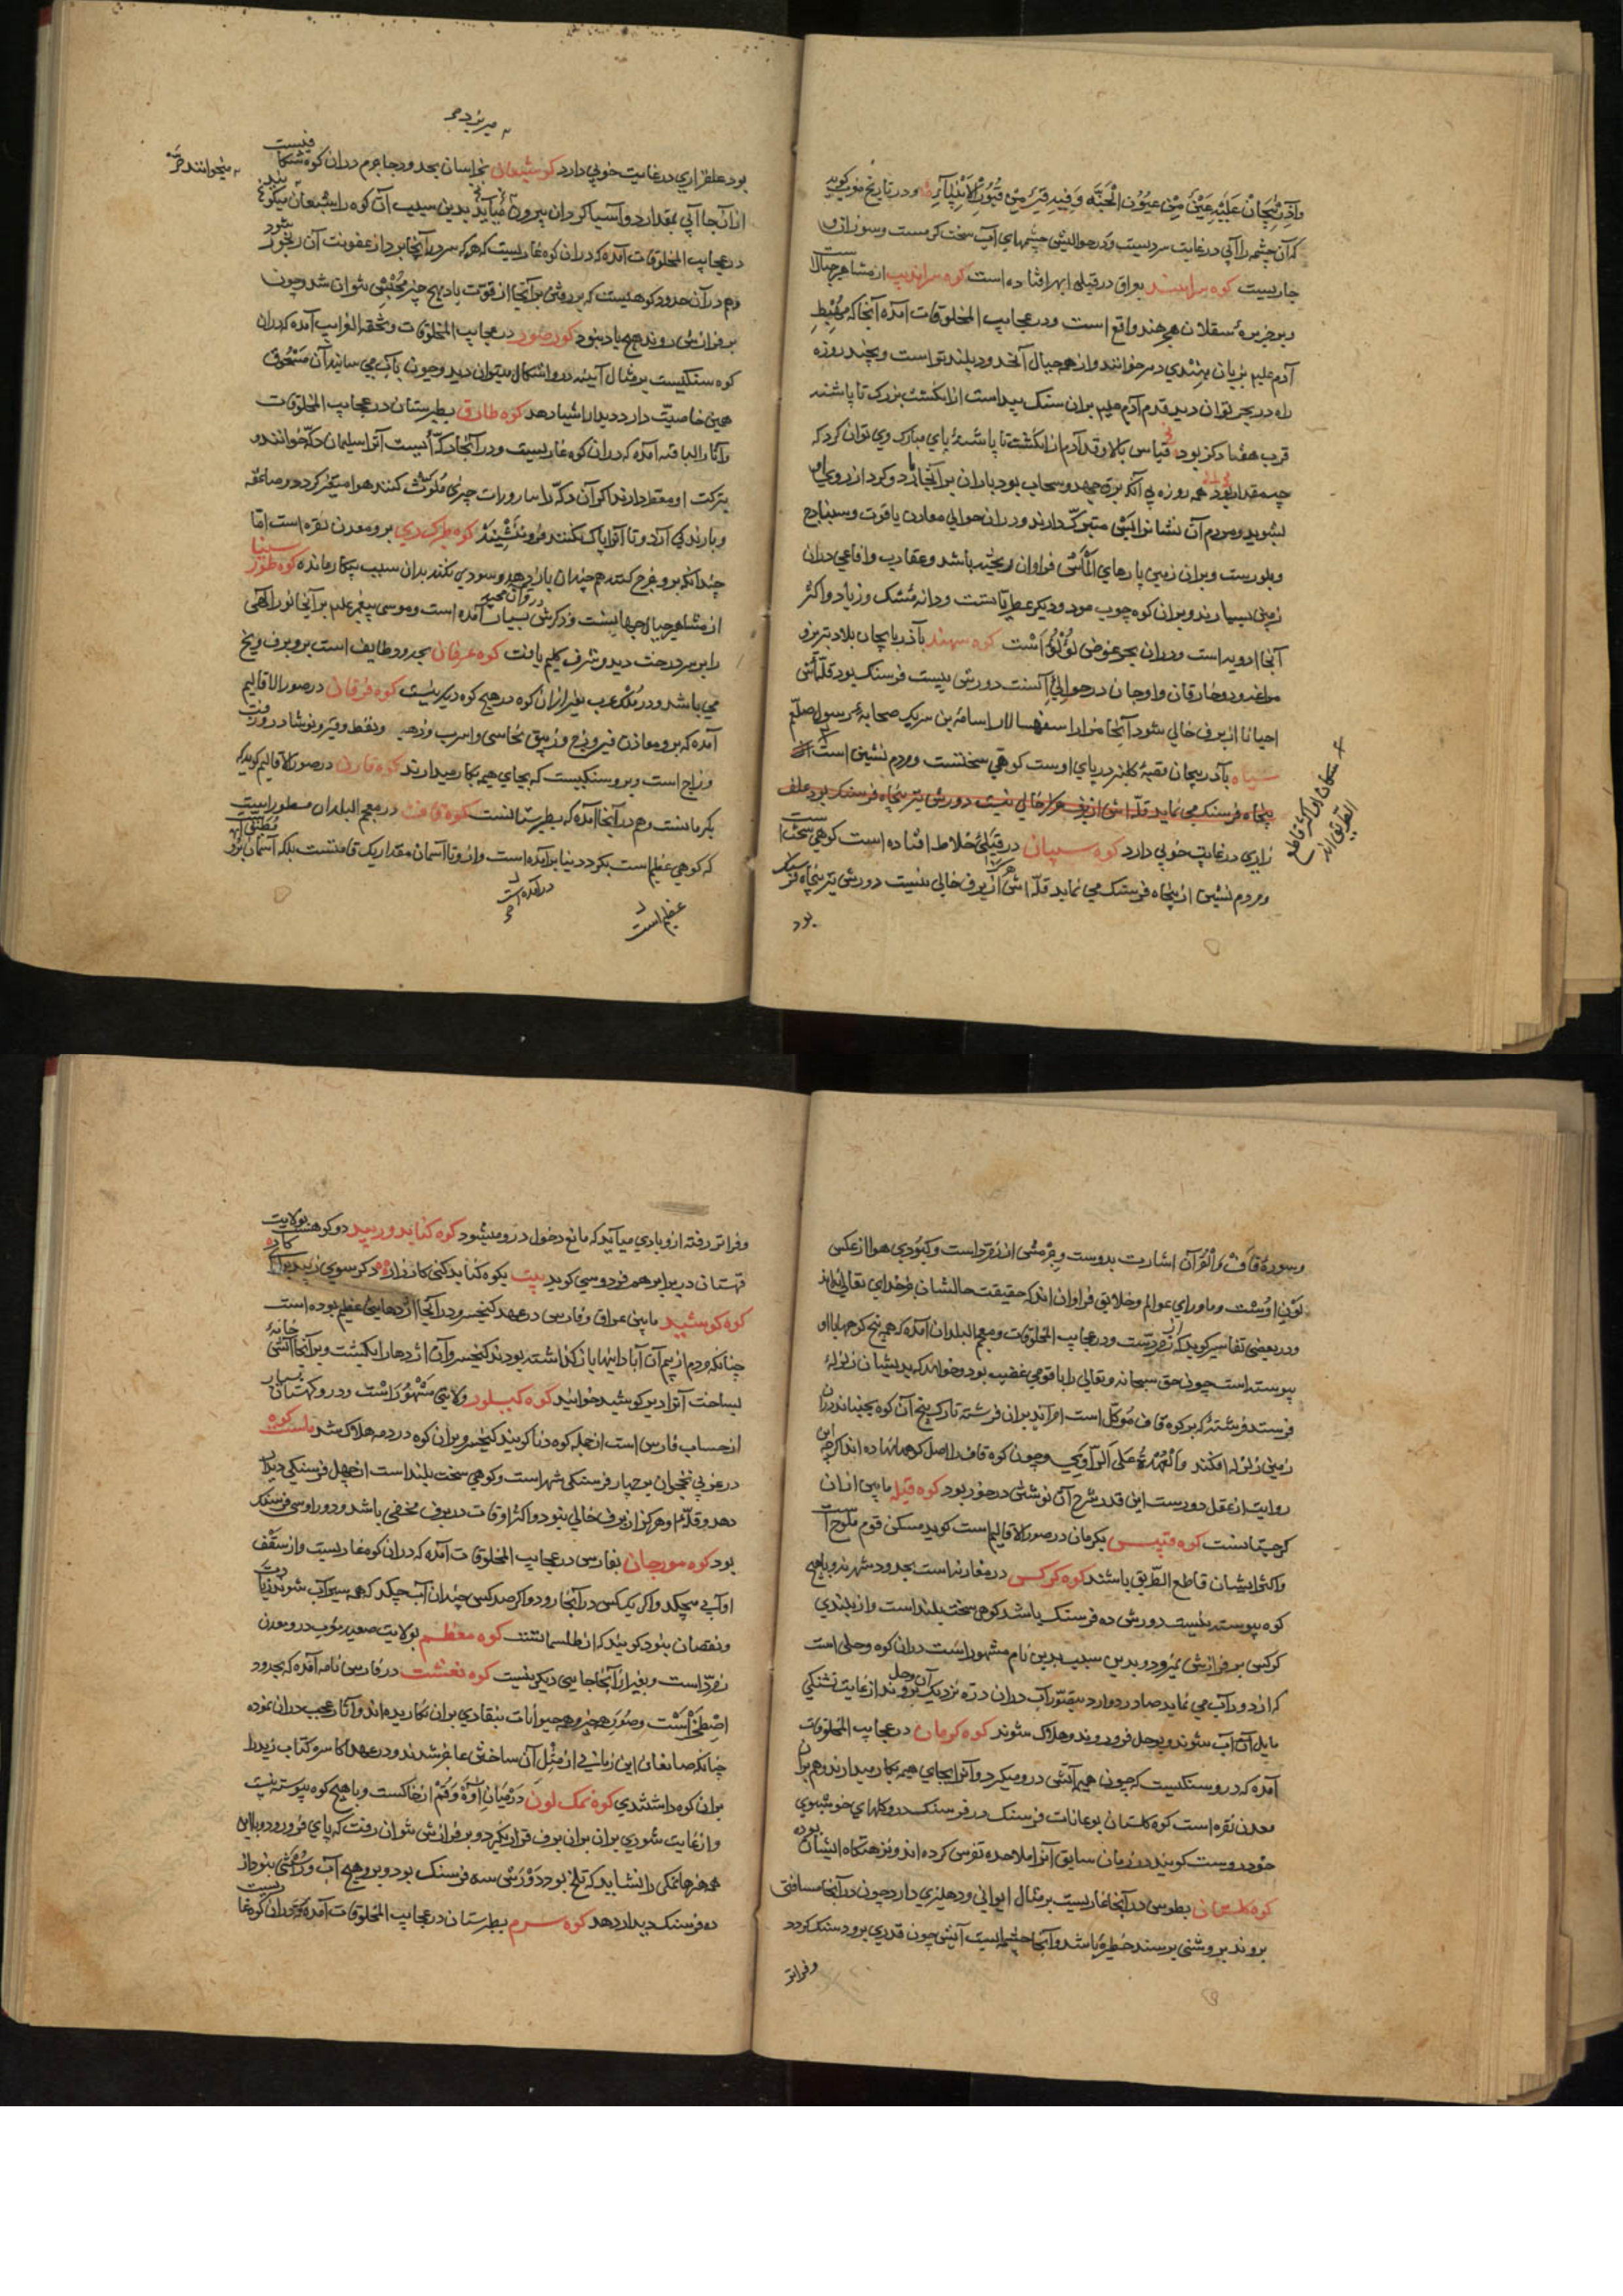 وآذربيجان عليه عين من عيون الجنة وفيه قبر من قبور الانبياء و در تاريخ مغرب كويد
كه آن چشمه را آبي در غايت سرديست و در حوالیش چشمهاي آب سخت كرمست و سوزان و
جاريست كوه سراهند بعراق در قبلي ابهر افتاده است كوه سرانديب از مشاهير جبال است
و بر جزيره سقلان هند واقع است و در عجايب المخلوقات آمده آنجا كه مهبط
آدم عليم بزبان هندي دمر خوانند و از همه جبال آن حدود بلند تر است و بچند روزه
راه در بحر توان ديد قدم آدم عليم بران سنك پيداست از انكشت بزرك تا پاشنه
قرب هفتاد كز بود قياس بالا و قد آدم از انكشت تا پاشنه پاي مبارك وي توان كرد كه
چه مقدار بود همه روزه بي آنكه برق جهد و سحاب بود باران بر آنجا بارد و كرد از روي او
بشويد و مردم آن نشانرا متبرك دارند و دران حوالي معادن ياقوت و سنباده
و بلورست و بران زمين پارهاي الماس فراوان ريخته باشد و عقارب و افاعي دران
زمين بسيارند و بران كوه چوب عود و ديكر عطرياتست و دانه مشك و زياد و اكثر
آنجا ادويه است و دران بحر غوض لؤلؤ است كوه سهند بآذربايجان بلاد تبريز و
مراغه و دهخارقان و اوجان در حوالي آنست دورش بيست فرسنك بود قله اش
احيانا از برف خالي شود آنجا مزار اسفهسالار اسامة بن سريك صحابه رسول صلعم
سياه بآذربيجان قصبه كلنبر در پاي اوست كوهي سختست و مردم نشين است
پنجاه فرسنك مي نمايد قله اش از برف هركز خالي نيست دورش پنجاه فرسنك بود علف
زاري در غايت خوبي دارد كوه سبلان در قبلي خلاط افتاده است كوهي سخت است
و مردم نشين از پنجاه فرسنك مي نمايد قله اش هركز از برف خالي نيست دورش پنجاه فرسنك
بود
سكان او اكثر قاطع
الطريق اند
بود علفزاري در غايت خوبي دارد كوه شيعان بخراسان بحدود جاجرم دران كوه شكافيست
از آنجا آبي بمقدار دو آسياكردان بيرون ميآيد بدين سبب آن كوه را شيعان ميكويند
در عجايب المخلوقات آمده كه دران كوه غاريست كه هر كه سر در آنجا برد از عفونت آن رنجور شود
و هم در آن حدود كوهيست كه بر روش بر آنجا از قوت باد هيچ چيز نتوان شد و چون
بر فرازش روند هيچ باد نبود كوه صور در عجايب المخلوقات و تحفه الغرايب آمده كه دران
كوه سنكيست بر مثال آيينه در و اشكال ميتوان ديد و چون باك مي سايند آن مسحوق
همين خاصيت دارد ديدار اشيا دهد كوه طارق بطبرستان در عجايب المخلوقات
و آثار الباقيه آمده كه دران كوه غاريست و در آنجا دكه ايست آنرا سليمان دكه خوانند و
بتركت او معتقد دارند اكر آن دكه را بقاذورات چيزي ملوث كنند هوا متغير كردد و صاعقه
و بارندكي آرد و تا آنرا پاك نكنند فرو ننشيند كوه طركري برو معدن نقره است اما
چندانكه برو خرج كنند هم چندان باز دهد و سودي نكند بدان سبب بيكار مانده كوه طور سينا
از مشاهير جبال جهانست و ذكرش در قرآن مجيد بسيار آمده است و موسي پيغمبر عليم بر آنجا نور الهي
را بر سر درخت ديد و شرف كليم يافت كوه غرفان بحدود طايف است برو برف و يخ
مي باشد و در ملك عرب بغير از ان كوه در هيچ كوه ديكر نيست كوه فرغان در صور الاقاليم
آمده كه برو معادن فيروزج و زيبق نحاس و اسرب و ذهب و نفط و قير و نوشادر و زفت
و زاج است و برو سنكيست كه بجاي هيمه بكار ميدارند كوه قارن در صور الاقاليم كويد كه
بكرمانست و هم در آنجا آمده كه بطبرستانست كوه قاف در معجم البلدان مسطور است
كه كوهي عظيم است بكرد دنيا بر آمده است و ازو تا آسمان مقدار يك قامتست بلكه آسمان برو
ميخوانند
در آمده است
عظيم است
و سوره قاف والقرآن اشارت بدوست و جرمش از زمرد است و كبودي هوا از عكس
لون اوست و ماوراي عوالم و خلايق فراوان اند كه حقيقت حالشان بجز خداي تعالي نداند
و در بعضي تفاسير كويد كه از زمرد است و در عجايب المخلوقات و معجم البلدان آمده كه همه بيخ كوهها با او
پيوسته است چون حق سبحانه و تعالي را با قومي غضب بود و خواهد كه بديشان زلزله
فرستد فرشته كه بر كوه قاف موكل است امر آيد بدان فرشته تا رك بيخ آن كوه بجنباند دران
زمين زلزله افكند والعهدة علي الراوي و چون كوه قاف را اصل كوهها نهاده اند اكر چه اين
روايت از عقل دورست اين قدر شرح آن نوشتن در خور بود كوه قبله مابين اران
كرجستانست كوه قفس بكرمان در صور الاقاليم است كويد مسكن قوم ملوج است
و اكثر ايشان قاطع الطريق باشند كوه كركس در مفازه است بحدود شهر ند و باهيچ
كوه پيوسته نيست دورش ده فرسنك باشد كوهي سخت بلند است و از بلندي
كركس بر فرازش نميرود و بدين سبب بدين نام مشهور است دران كوه وحلي است
كه از دور آب مي نمايد صادر و وارد بتصور آب دران دره نزديك آن وحل روند از غايت تشنكي
مايل آن آب شوند و بوحل فرو روند و هلاك شوند كوه كرمان در عجايب المخلوقات
آمده كه درو سنكيست كه چون هيمه آتش درو ميكيرد و آنرا بجاي هيمه بكار ميدارند و هم بران
معدن نقره است كوه كلستان بو عانات فرسنك در فرسنك درو كلهاي خوشبوي
خودروست كويند در زمان سابق آنرا ملاحده تفرس كرده اند و نزهتكاه ايشان بوده
كوه كلستان بطوس در آنجا غاريست بر مثال ايواني و دهليزي دارد چون در آنجا مسافتي
بروند بروشني برسند حظيره باشد و آنجا چشمه ايست آبش چون قدري برود سنك كردد
و فراتر
و فراتر رفته از و بادي ميآيد كه مانع دخول درو ميشود كوه كنابد و ريبد دو كوهست بولايت
قهستان در برابر هم فردوسي كويد بيت يكوه كنابد كني كارزار دكر سوي زيبد
كوه كوشيد مابين عراق و فارس در عهد كيخسرو در آنجا اژدهايي عظيم بوده است
چنانكه مردم از بيم آن آبادانيها باز كذاشته بودند كيخسرو آن اژدها را بكشت و بر آنجا آتش خانه
بساخت آنرا دير كوشيد خوانند كوه كيلويه ولايتي مشهور است و درو كهستان بسيار
از حساب فارس است از جمله كوه دنا كويند كيخسرو بران كوه در دمه هلاك شد كوه ماست
در غربي نخجوان بچهار فرسنكي شهر است و كوهي سخت بلند است از چهل فرسنكي ديدار
دهد و قله او هركز از برف خالي نبود و اكثر اوقات در برف مخفي باشد و دور او سي فرسنك
بود كوه مورجان بفارس در عجايب المخلوقات آمده كه دران كوه غاريست و از سقف
او آب ميچكد و اكر يك كس در آنجا رود و اكر صد كس چندان آب چكد كه همه سيراب شوند زيادت
و نقصان نبود كويند كه از طلسماتست كوه معظم بولايت صعيد مغرب درو معدن
زمرد است و بغير از آنجا جايي ديكر نيست كوه نفشت در فارس نامه آمده كه بحدود
اصطخر است و صور همه چيز و همه حيوانات بنقاري بران نكاريده اند و آثار عجب دران نموده
چنانكه صانعان اين زمان از مثل آن ساختن عاجز شدند و در عهد اكاسره كتاب زند را
بران كوه داشتندي كوه نمك لون در ميان آوه و قم از خاكست و باهيچ كوه پيوسته نيست
و از غايت شوري بران بوان برف قرار نكيرد و بر فرازش نتوان رفت كه پاي فرو رود و بالايي
همه نمكي را نشايد كه تلخ بود دورش سه فرسنك بود و برو هيچ آب و رستني نبود از
ده فرسنك ديدار دهد كوه سرم بطبرستان در عجايب المخلوقات آمده كه دران كوه غاريست